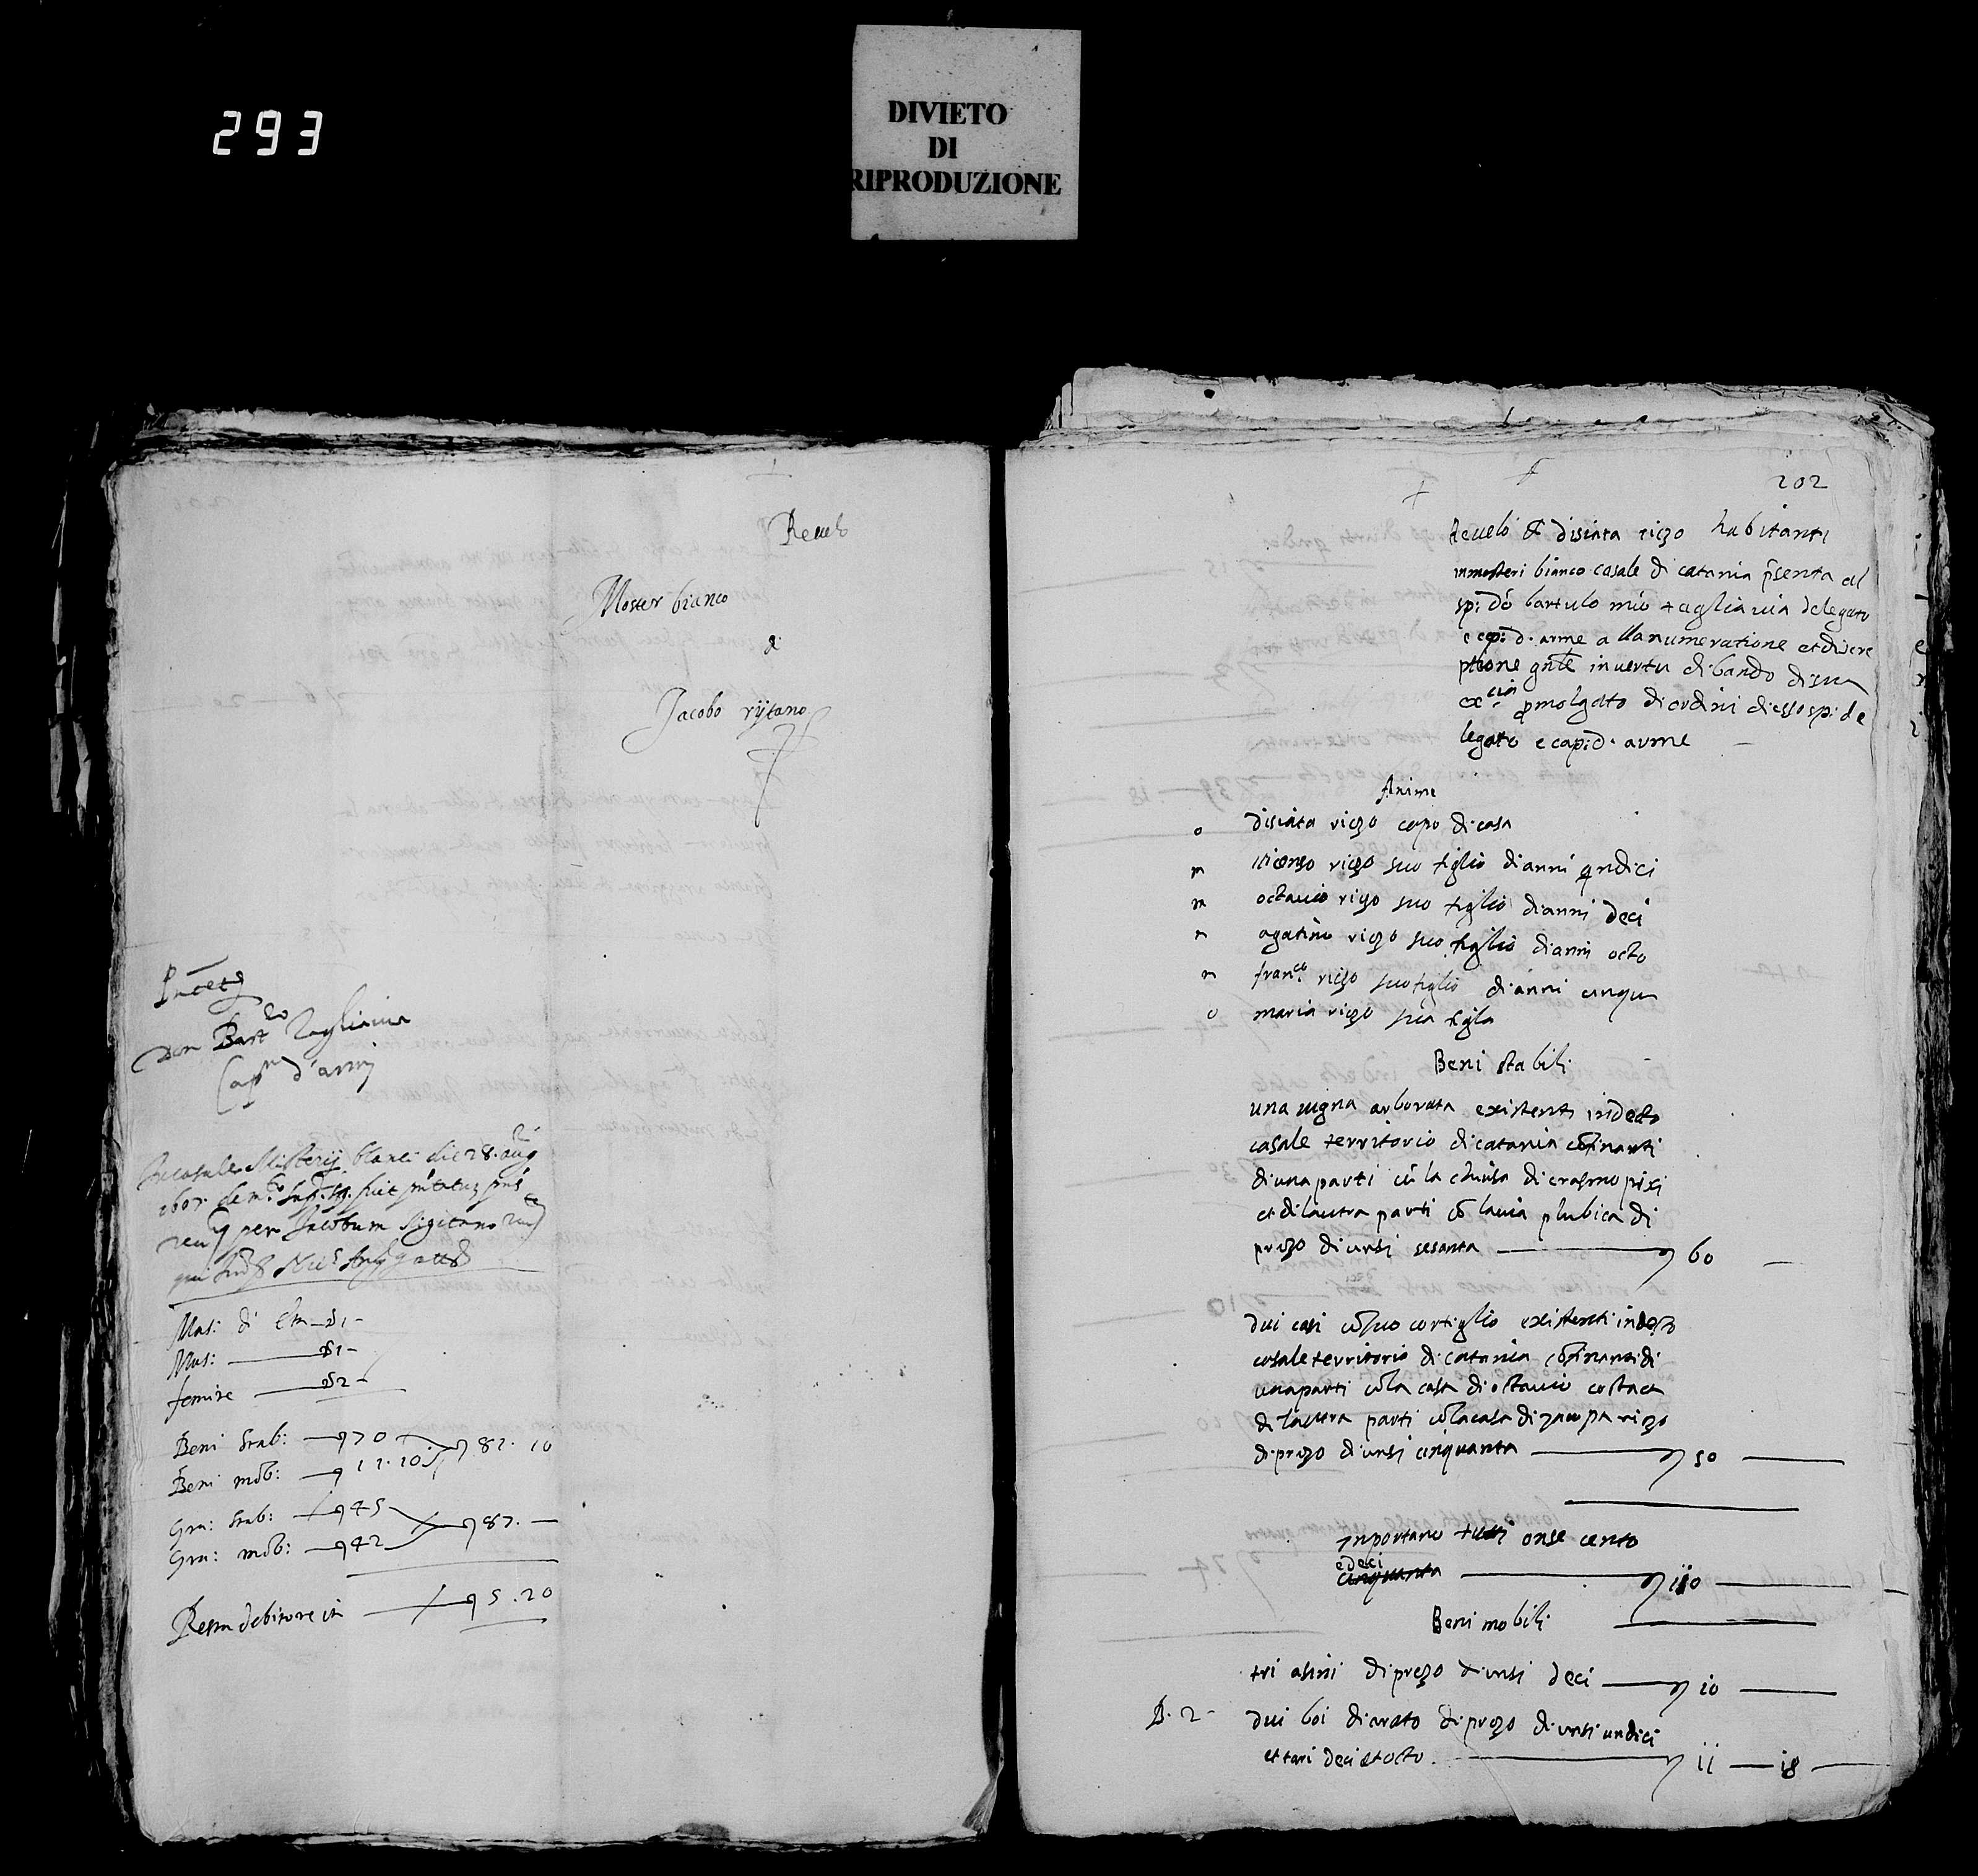 293
DIVIETO
DI
RIPRODUZIONE
Revelo
Moster bianco
di
Jacobo rijtano
Don Bart.lo Tagliavia
Cap.n d'armi
In casale Misterij blanci die 28. aug.ti
1607. per Jacobum Sigitano
Mas: di
Mas: 1
femine 2
Beni stab: 70
Beni mob: 11.10 81. 10
Gra: stab: 45
Gra: mob: 42 87.
Resta debitore in 5.20
202
Revelo di disiata rizo habitanti
in mosteri bianco casale di catania p̄senta al
sp: dó bartulo mio tagliavia delegato
e cap: d. arme a lla numeratione et discre
ptione gnle in vertu di bando di sua
ex.cia promolgato di ordini di esso sp: de
legato e cap: d. arme
Anime
o disiata rizo capo di casa
m vicenzo rizo suo figlio di anni qndici
m octavio rizo suo figlio di anni deci
m agatino rizo suo figlio di anni octo
m fran.co rizo suo figlio di anni cinqu
o maria rizo sua figla
Beni stabili
una vigna arborata existenti in decto
casale territorio di catania cōfinanti
di una parti cū la chiusa di erasmo pixi
et di lautra parti cō la via plubica di
prezo di unsi sesanta 60
dui casi cō suo cortiglio existenti in decto
casale territorio di catania cōfinanti di
una parti cō la casa di octavio costa et
di lautra parti cō la casa di rizo
di prezo di unsi cinquanta 50
Inportano tutti onse cento
e deci
cinquanta 110
Beni mobili
tri asini di prezo di unsi deci 10
B. 2 dui boi di arato di prezo di unsi undici
et tari deci et octo 11 18